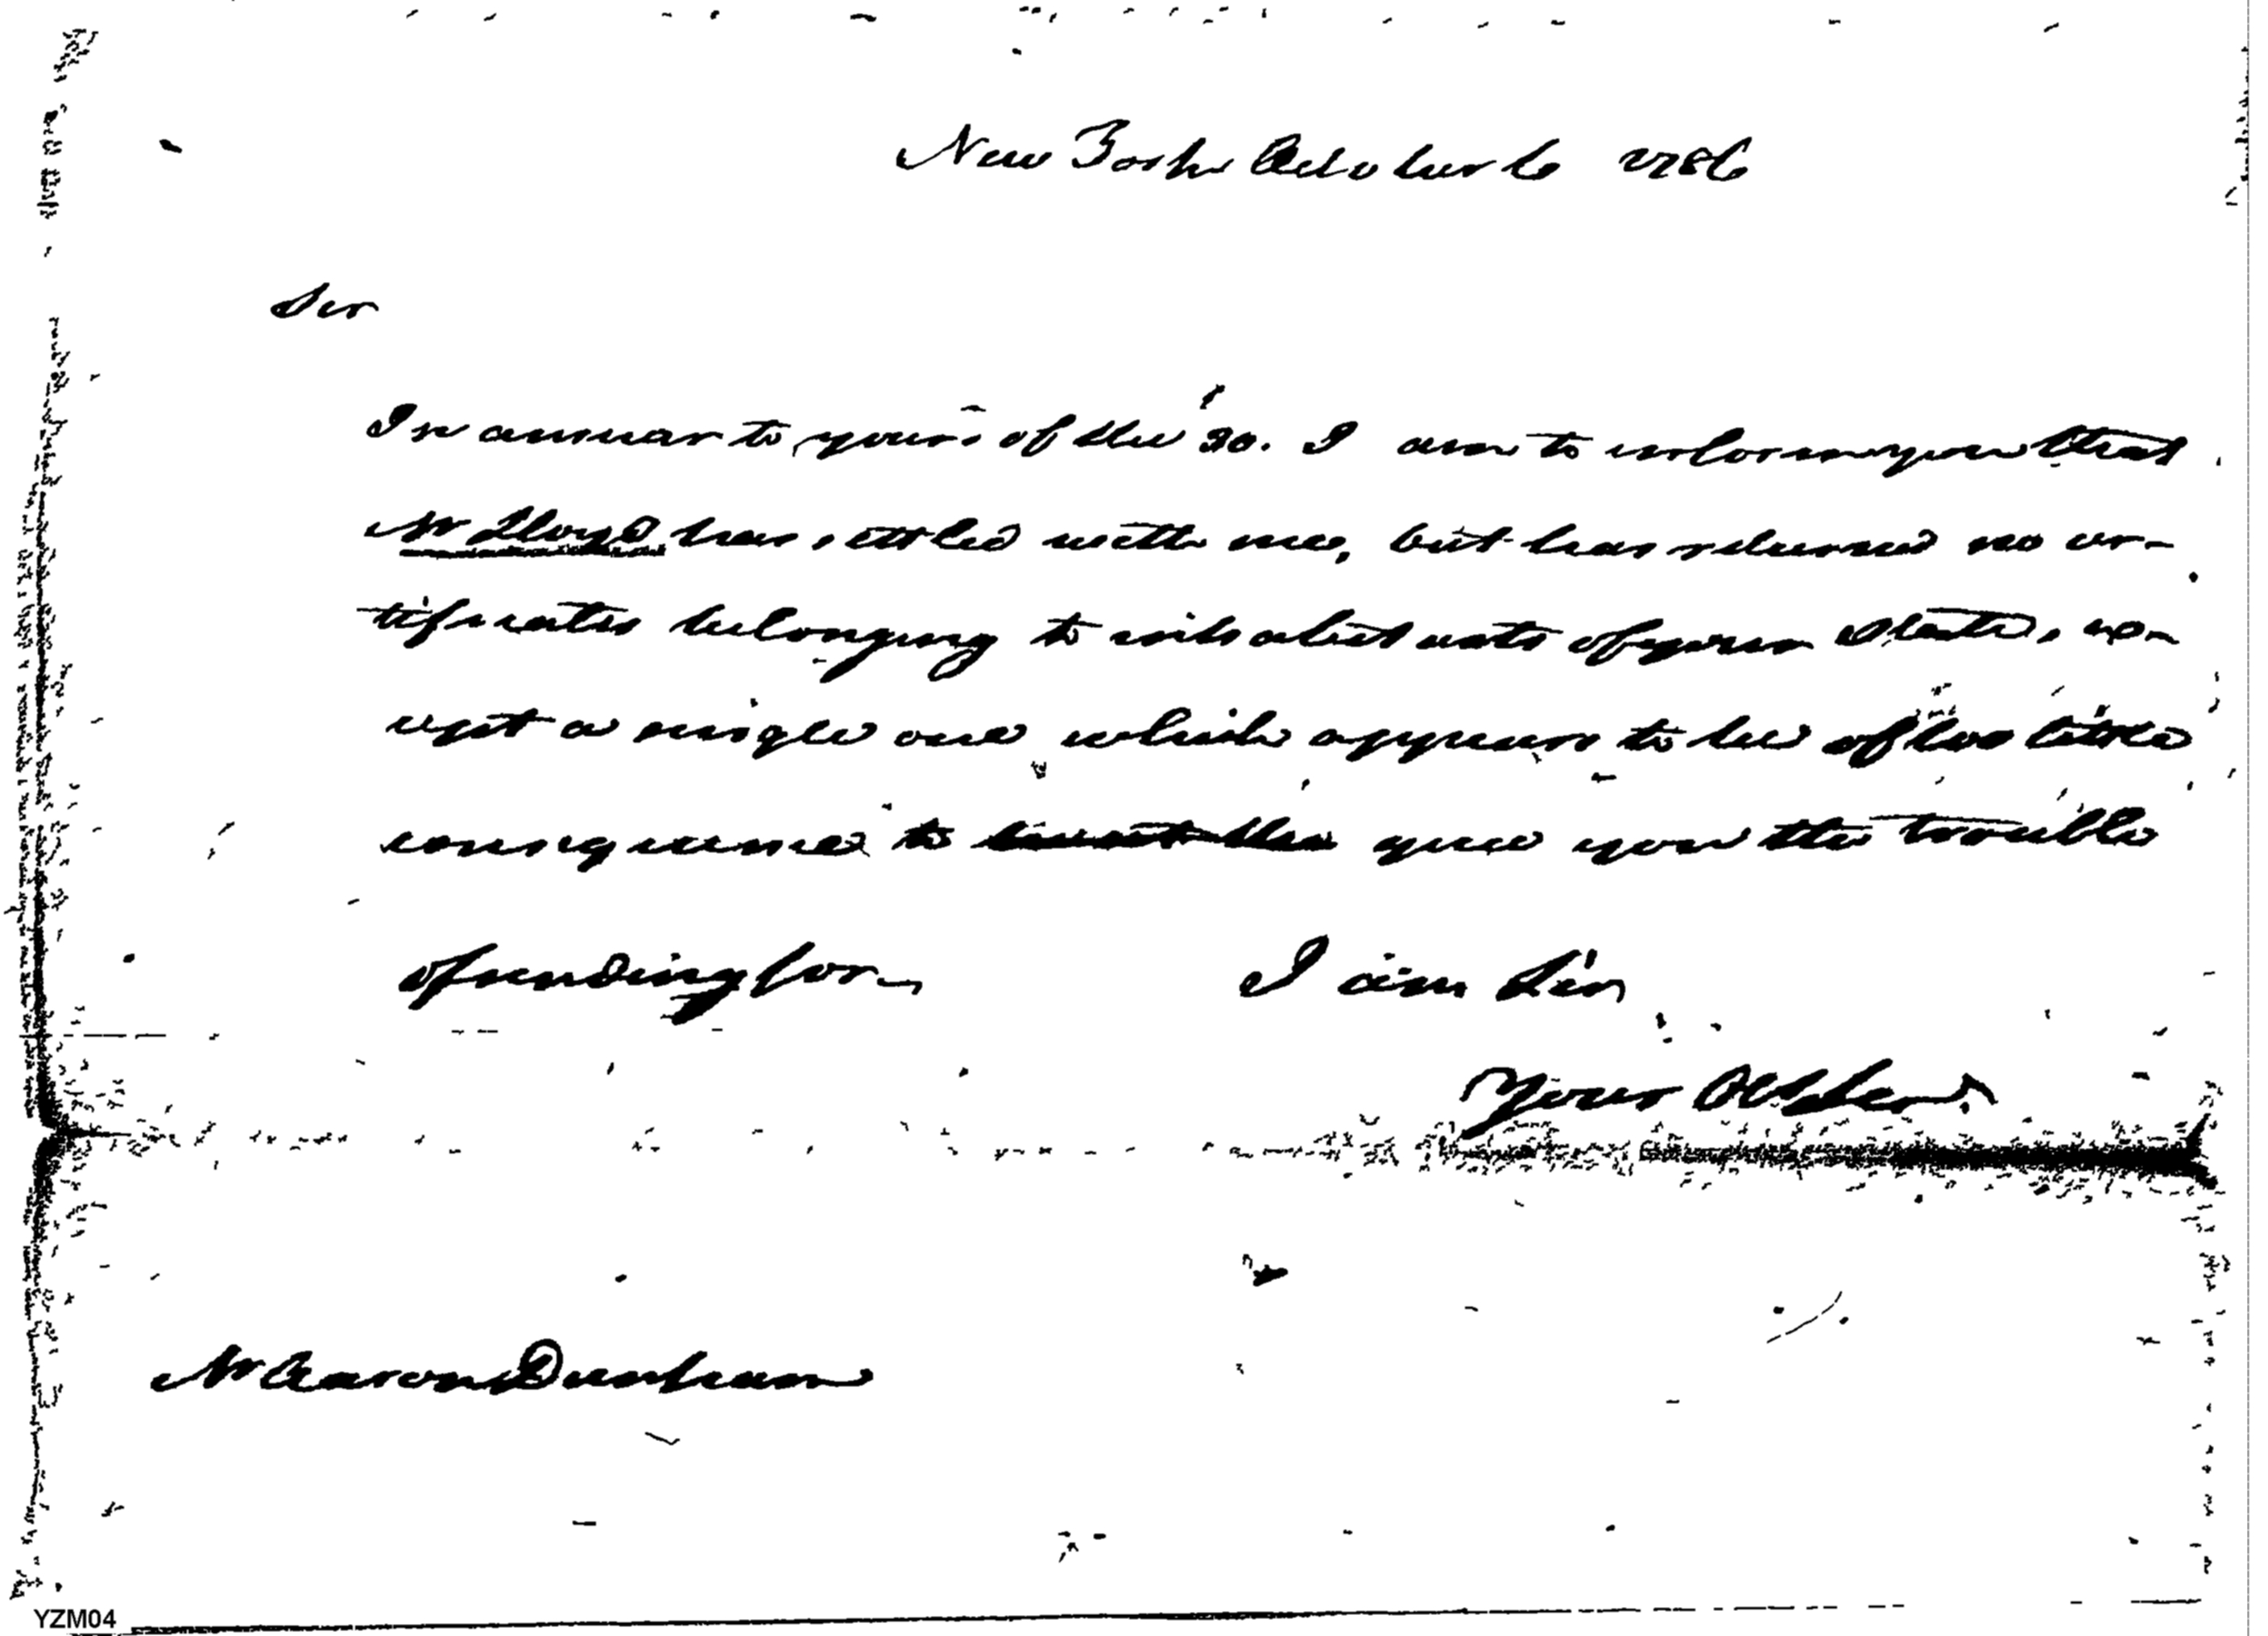 New York October 6 1786
Sir
In answer to yours of the 30. I am to inform you that
Mr Lloyd has settled with me, but has returned no cer-
tificates belonging to inhabitants of your State, ex-
cept a single one which appears to be of too little
consequence to give you the trouble
of sending for
I am Sir
Your Ob Ser.
Mr Aaron Dunham
YZM04